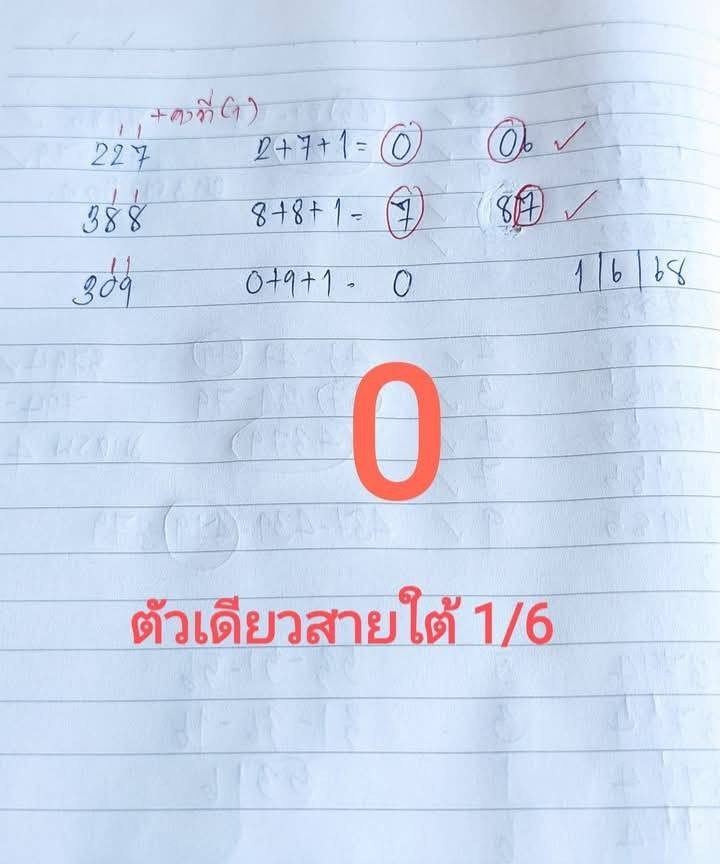 +ค่าที่ (1)
227 2+7+1= 0 06 ✓
388 8+8+1= 7 87 ✓
309 0+9+1= 0 1/6/68
0
ตัวเดียวสายใต้ 1/6